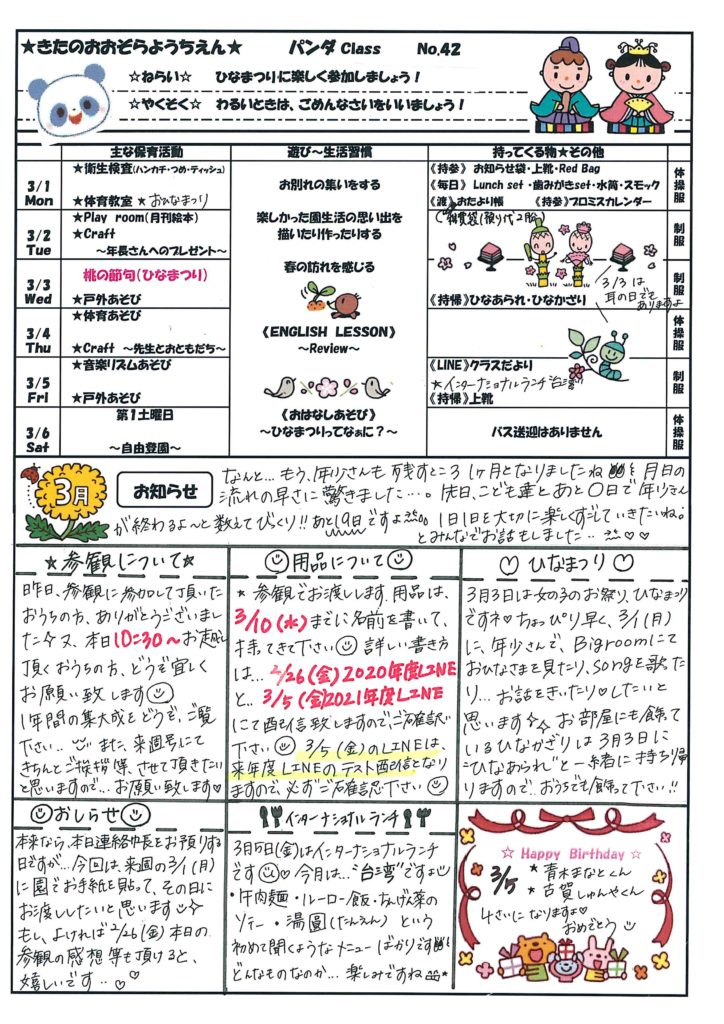 ★きたのおおぞらようちえん★ パンダ Class No.42
☆ねらい☆ ひなまつりに楽しく参加しましょう！
☆やくそく☆ わるいときは、ごめんなさいをいいましょう！
主な保育活動 遊び～生活習慣 持ってくる物★その他
3/1 Mon
★衛生検査(ハンカチ・つめ・ティッシュ)
★体育教室 ★おひなまつり
3/2 Tue
★Play room(月刊絵本)
★Craft
～年長さんへのプレゼント～
3/3 Wed
桃の節句(ひなまつり)
★戸外あそび
3/4 Thu
★体育あそび
★Craft ～先生とおともだち～
3/5 Fri
★音楽リズムあそび
★戸外あそび
3/6 Sat
第1土曜日
～自由登園～
お別れの集いをする
楽しかった園生活の思い出を
描いたり作ったりする
春の訪れを感じる
《ENGLISH LESSON》
～Review～
《おはなしあそび》
～ひなまつりってなぁに？～
《持参》 お知らせ袋・上靴・Red Bag
《毎日》 Lunch set ・歯みがきset・水筒・スモック
《渡》おたより帳 《持参》プロミスカレンダー
体操服
制服
3/3は
耳の日でも
ありますよ
《持帰》ひなあられ・ひなかざり
制服
体操服
《LINE》クラスだより
★インターナショナルランチ"台湾"
《持帰》上靴
制服
バス送迎はありません
体操服
3月
お知らせ
なんと…もう、年少さんも残すところ1ヶ月となりましたね 月日の
流れの早さに驚きました…。先日、こども達とあと〇日で年少さん
が終わるよ～と数えてびっくり!!あと19日ですよ。1日1日を大切に楽しくすごしていきたいね。
とみんなでお話もしました…♡♡
★参観について★
昨日、参観に参加して頂いた
おうちの方、ありがとうございまし
た 又、本日10:30～お越し
頂くおうちの方、どうぞ宜しく
お願い致します
1年間の集大成をどうぞ、ご覧
下さい… また、来週号にて
きちんとご挨拶等、させて頂きたい
と思いますので…お願い致します♡
用品について
★参観でお渡しします用品は、
3/10(水)までに名前を書いて、
持ってきて下さい 詳しい書き方
は…2/26(金)2020年度LINE
と…3/5(金)2021年度LINE
にて配信致しますのでご確認
下さい 3/5(金)のLINEは
来年度LINEのテスト配信となり
ますので、必ずご確認下さい
♡ひなまつり♡
3月3日は女の子のお祭り、ひなまつり
ですネ ちょっぴり早く、3/1(月)
に、年少さんで、Bigroomにて
おひなさまを見たり、Songを歌っ
たり…お話をきいたり♡したいと
思います お部屋にも飾って
いるひなかざりは3月3日に
"ひなあられ"と一緒に持ち帰
りますので。おうちでも飾って下さい!!
おしらせ
本来なら、本日連絡帳をお預りする
日ですが…今回は、来週の3/1(月)
に園でお手紙を貼って、その日に
お渡ししたいと思います
もし、よければ2/26(金)本日の
参観の感想等も頂けると、
嬉しいです…♡♡
インターナショナルランチ
3月5日(金)はインターナショナルランチ
です♡今月は…"台湾"ですよ
・牛肉麺・ルーロー飯・ちんげん菜の
ソテー・湯圓(たんえん)という
初めて聞くようなメニューばかりです
どんなものなのか…楽しみですね
☆ Happy Birthday ☆
3/5
★青木まなとくん
★古賀しゅんやくん
4さいになりますよ
おめでとう